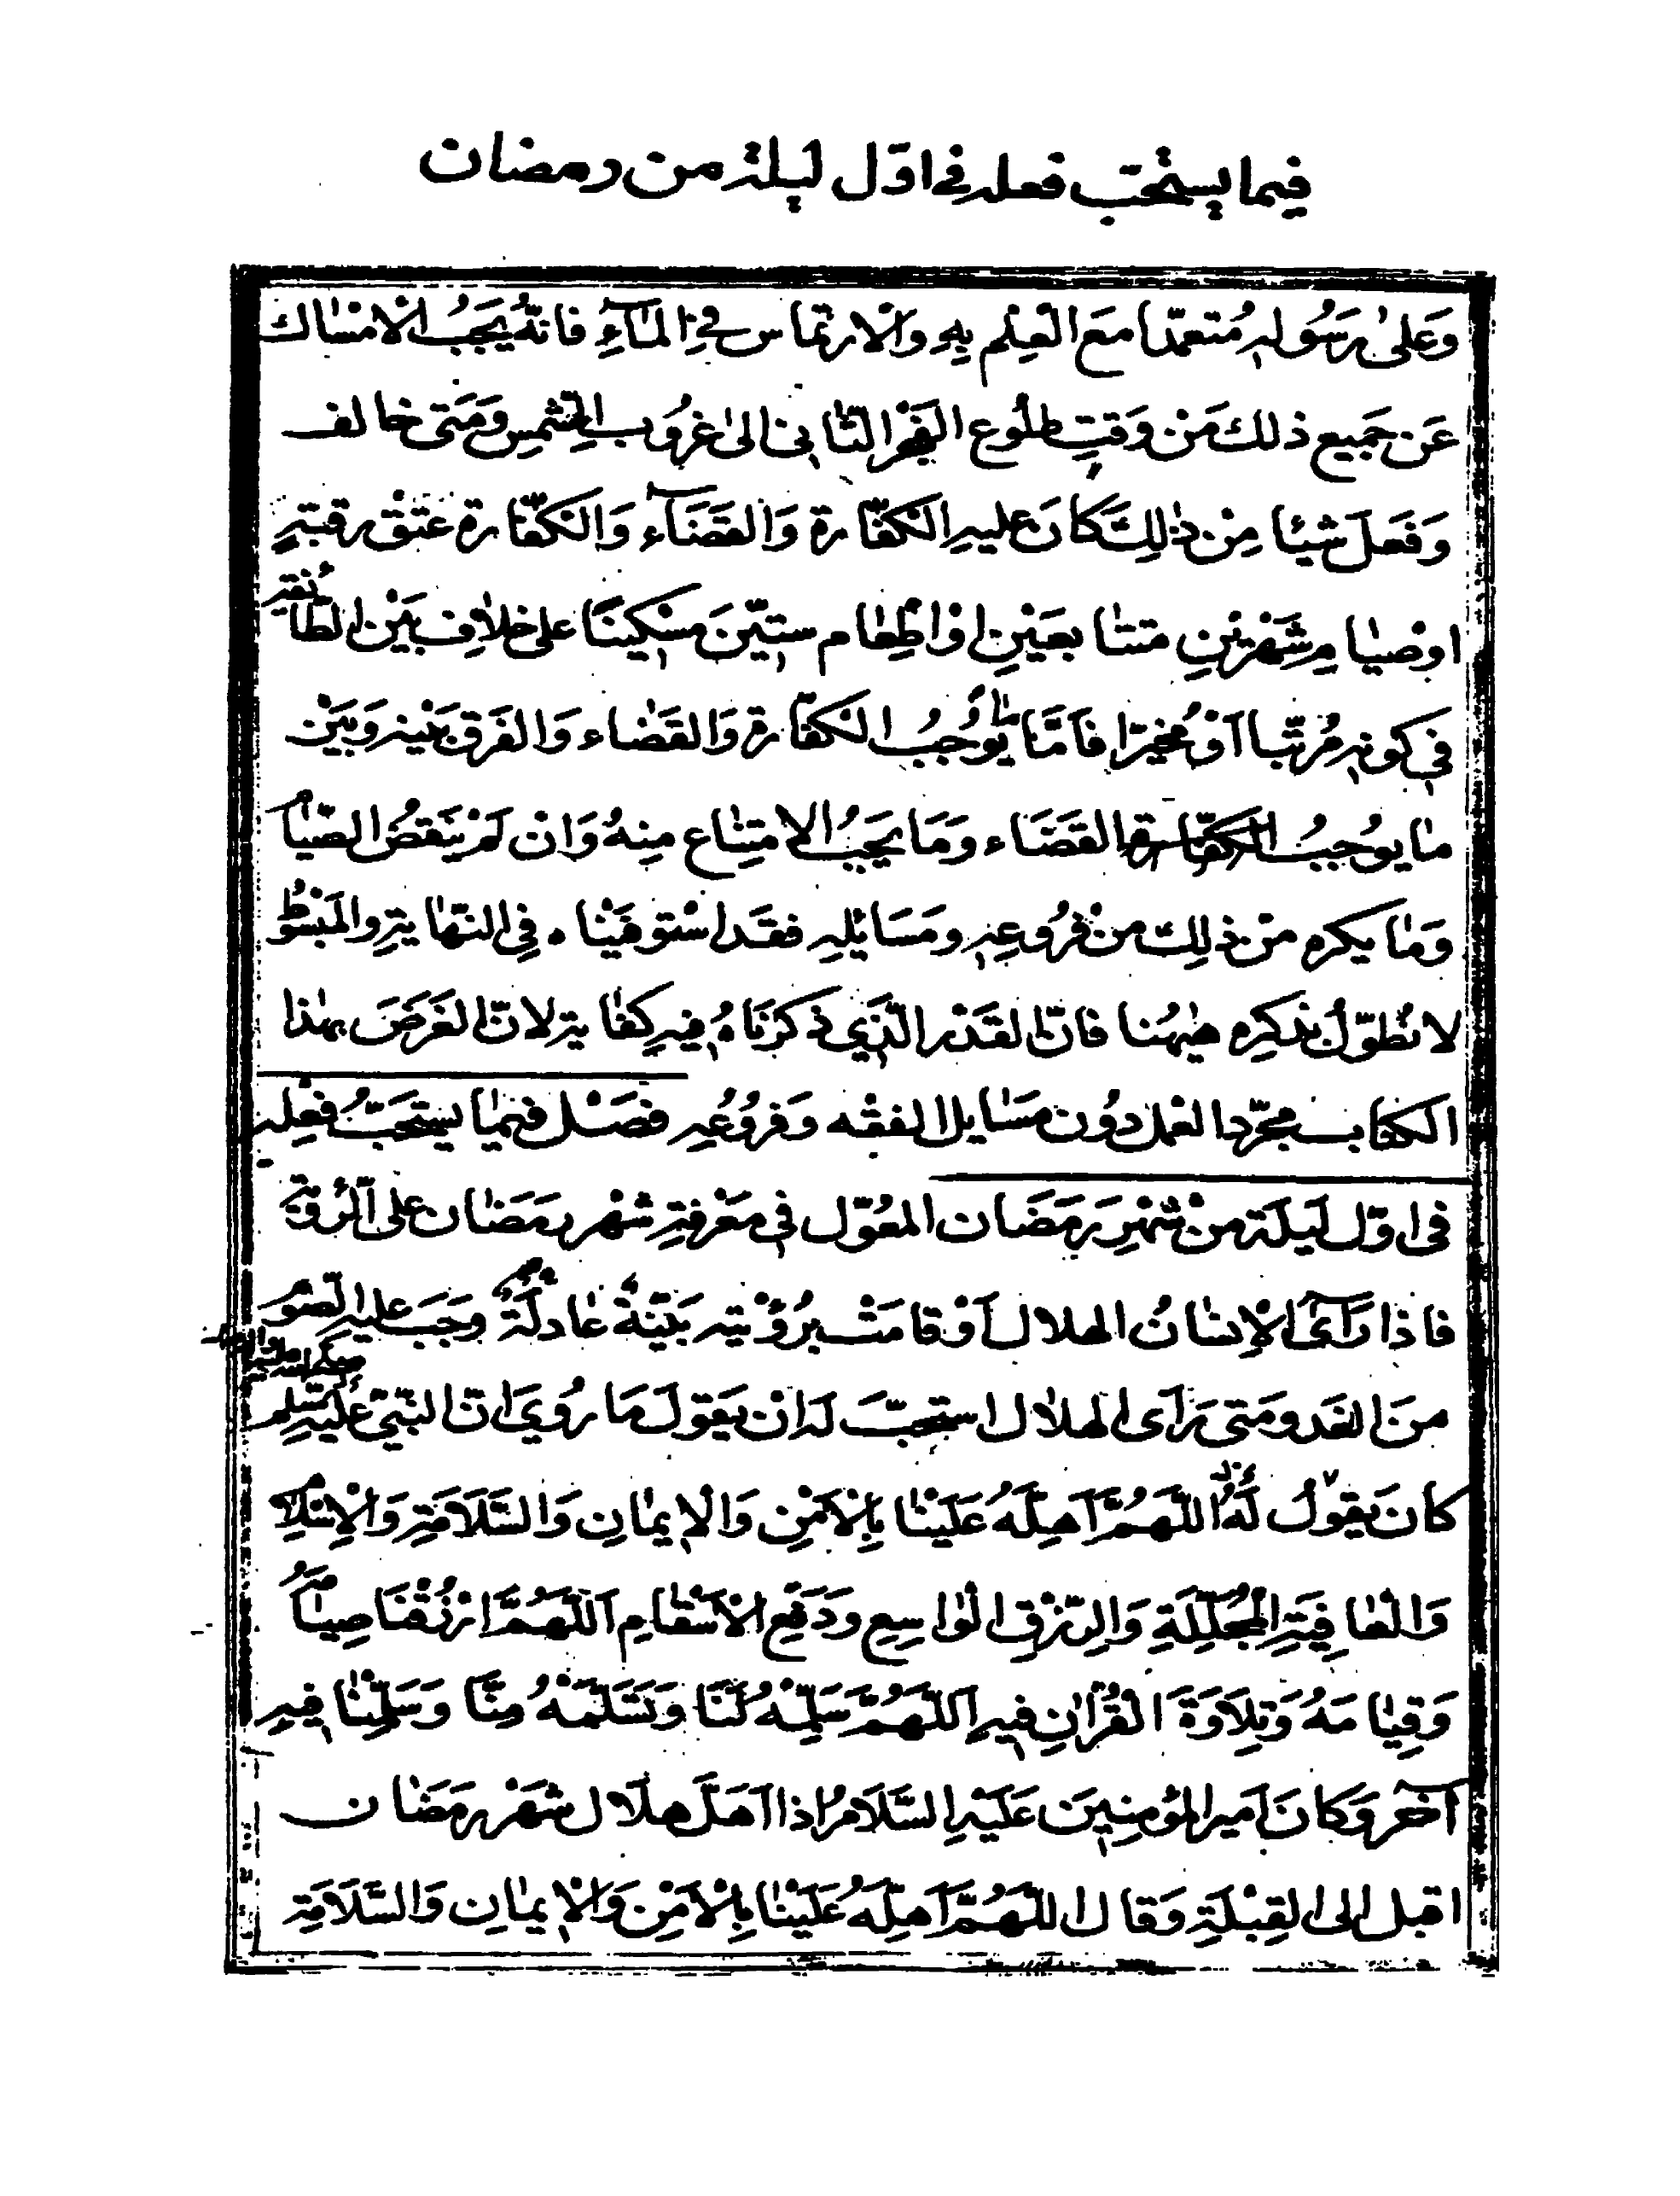 فيما يستحب فعله في اوّل ليلة من رمضان
وَعَلىٰ رَسُولِهِ مُتعمّدا مَعَ الْعِلْمِ بِهِ وَالْارتماس فِي الْمَآءِ فَانّهُ يَجِبُ الْامْسٰاك
عَن جَميع ذلك مَنْ وَقتِ طلُوع الفَجْر الثّاني الىٰ غرُوب الشّمسِ وَمَتى خالف
وَفَعَلَ شيْئا مِنْ ذٰلِكَ كانَ عليهِ الْكفّارة وَالقَضَآء وَالْكفّارة عتْقُ رقبةٍ
اوْ صيٰام شَهْرَيْنِ متتٰابعَيْنِ اوْ اطْعٰام ستّينَ مِسْكينًا على خلٰافٍ بَيْن الطّائفة
في كونهِ مُرتّبا اَوْ مُخيّرًا فَامَّا مٰا يُوجبُ الْكفّارة وَالقَضٰاء وَالفَرَق بَيْنه وَبَيْن
مٰا يوُجبُ الْكفّارة القَضَاء وَمَا يَجبُ الامتنٰاع مِنهُ وَانْ لَمْ يَنقضُ الصّيٰام
وَمٰا يكره منْ ذلِك من فرُوعِهِ ومَسَايلِه فقَد اسْتوفَيْنٰاه فِي النّهٰايةِ وَالمَبْسُوط
لا نُطوّلُ بذكرِه هٰيهُنا فانّ القَدْر الّذي ذكرْنَاهُ فيهِ كفٰاية لانّ الغَرَضَ بهٰذا
الكتاب مجرّد العْمل دوُن مسَايل الفقْه وَفرُوُعهِ فصَلْ فيمٰا يستحَبُّ فعْلِه
في اوّل لَيلَة منْ شَهْرِ رَمَضَان المعُوّل في مَعْرفةِ شهْر رمَضٰان على الرّؤية
فاذا رَآىَ الْاِنسٰانُ الهلال اَوْ قامَتْ برُؤْيته بَيّنةٌ عٰادلَةٌ وَجَبَ عليهِ الصّوم
منَ الغَد ومَتى رَآى الهلٰال استحبّ لَهُ انْ يَقولَ مَا رُويَ انّ النّبيّ عَليْهِ السّلم
كانَ يَقولُ لَهُ اللّهُمَّ اَهِلَّهُ عَلَيْنٰا بِالْاَمْنِ وَالْايمٰانِ وَالسَّلَامَةِ وَالْاِسْلٰام
وَالْعٰافِيَةِ الْمُجَلِّلَةِ وَالرِّزْقِ الْوٰاسِعِ وَدَفْعِ الْاَسْقٰامِ اَللّهُمَّ ارْزُقْنَا صِيٰامَهُ
وَقِيٰامَهُ وَتِلَاوَةَ الْقُرْاٰنِ فيهِ اَللّهُمَّ سَلِّمْهُ لَنَا وَتَسَلَّمْهُ مِنَّا وَسَلِّمْنٰا فيهِ
آخَر وَكانَ اَميرالمؤمنِينَ عَلَيْهِ السَّلَامُ اذا اَهَلَّ هلَال شهْر رمَضٰان
اقبل الى القِبْلَةِ وَقال اللّهُمَّ اَهِلَّهُ عَلَيْنٰا بِالْاَمْنِ وَالْايمٰانِ وَالسَّلَامَةِ